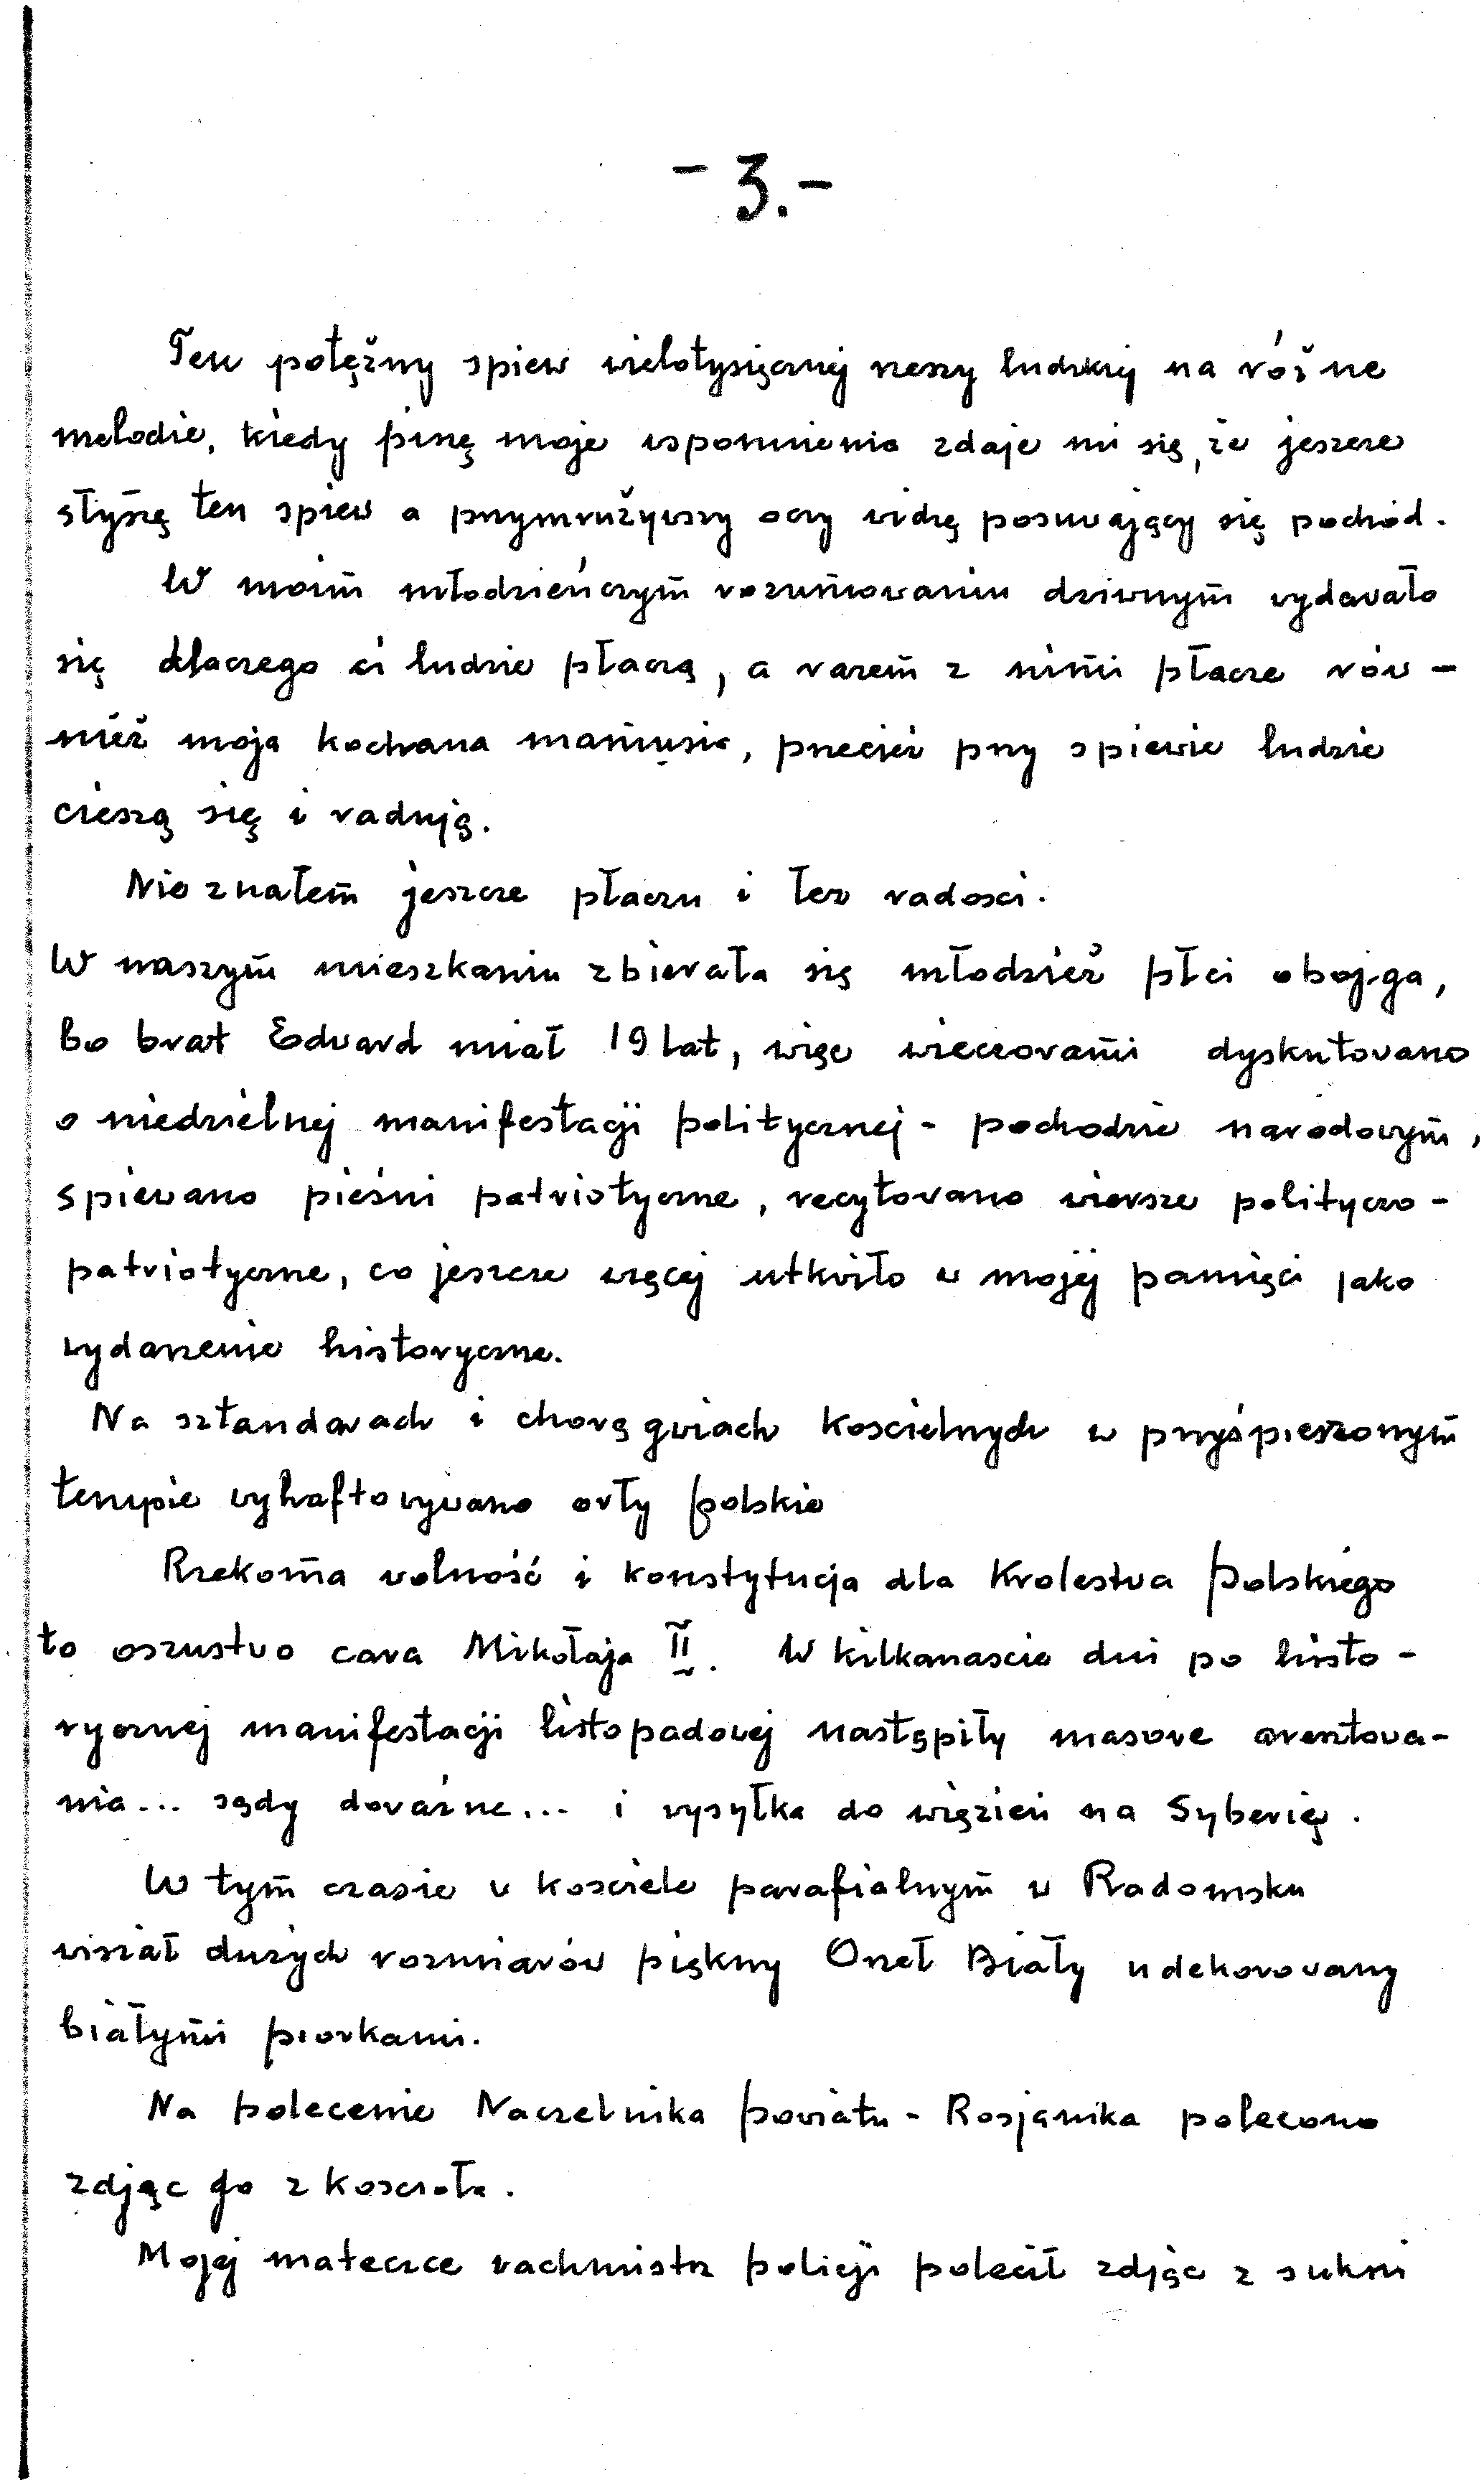 - 3. -
Ten potężny spiew wielotysięcznej rzeszy ludzkiej na różne
melodie, kiedy piszę moje wspomnienia zdaje mi się, że jeszcze
słyszę ten spiew a przymrużywszy oczy widzę posuwający się pochód.
W moim młodzieńczym rozumowaniu dziwnym wydawało
się dlaczego ci ludzie płaczą, a razem z nimi płacze rów-
nież moja kochana mamusia, przecież przy spiewie ludzie
cieszą się i radują.
Nie znałem jeszcze płaczu i łez radosci.
W naszym mieszkaniu zbierała się młodzież płci obojga,
bo brat Edward miał 19 lat, więc wieczorami dyskutowano
o niedzielnej manifestacji politycznej - pochodzie narodowym,
spiewano pieśni patriotyczne, recytowano wiersze polityczo-
patriotyczne, co jeszcze więcej utkwiło w mojej pamięci jako
wydarzenie historyczne.
Na sztandarach i chorągwiach koscielnych w przyśpieszonym
tempie wyhaftowywano orły polskie
Rzekoma wolność i konstytucja dla Krolestwa Polskiego
to oszustwo cara Mikołaja II. W kilkanascie dni po histo-
rycznej manifestacji listopadowej nastąpiły masowe aresztowa-
nia... sądy doraźne... i wysyłka do więzień na Syberię.
W tym czasie w kosciele parafialnym w Radomsku
wisiał dużych rozmiarów piękny Orzeł Biały udekorowany
białymi piorkami.
Na polecenie Naczelnika powiatu - Rosjanika polecono
zdjąc go z koscioła.
Mojej mateczce wachmistrz policji polecił zdjąc z sukni